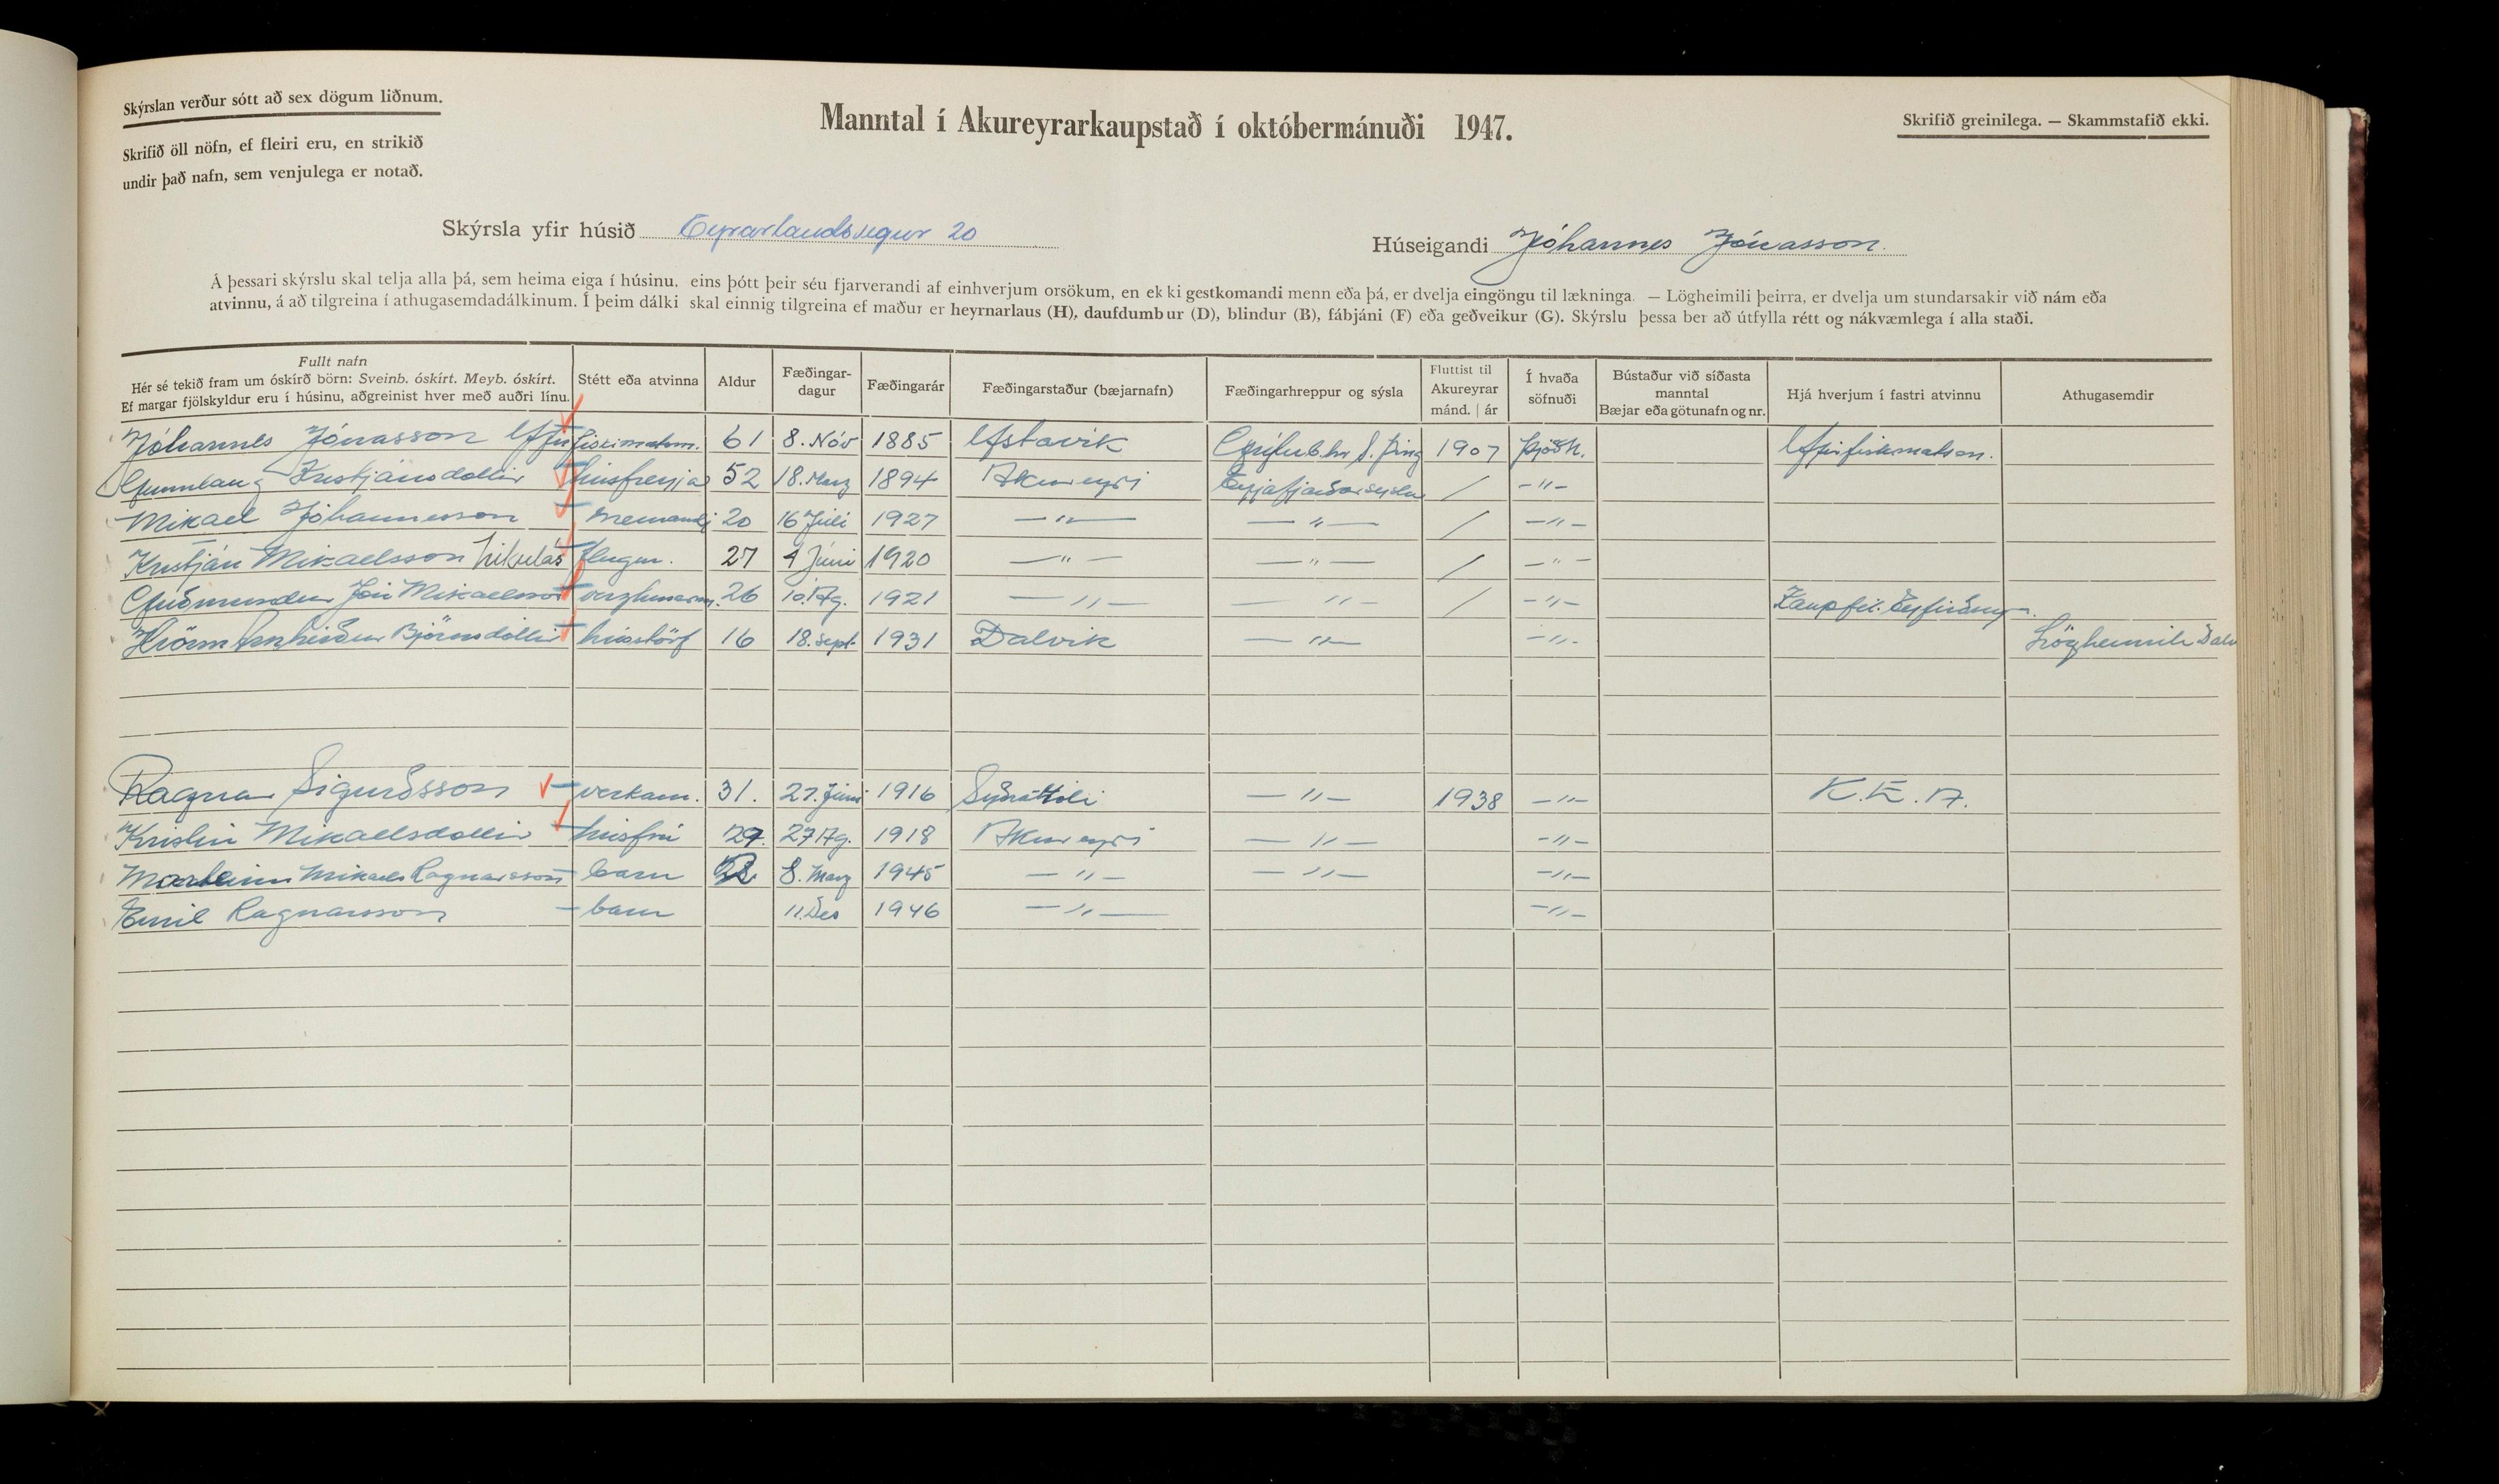 Skýrslan verður sótt að sex dögum liðnum.
Skrifið öll nöfn, ef fleiri eru, en strikið
undir það nafn, sem venjulega er notað.
Manntal í Akureyrarkaupstað í októbermánuði 1947.
Skrifið greinilega. — Skammstafið ekki.
Skýrsla yfir húsið Eyrarlandsvegur 20
Húseigandi Jóhannes Jónasson
Á þessari skýrslu skal telja alla þá, sem heima eiga í húsinu, eins þótt þeir séu fjarverandi af einhverjum orsökum, en ekki gestkomandi menn eða þá, er dvelja eingöngu til lækninga. — Lögheimili þeirra, er dvelja um stundarsakir við nám eða
atvinnu, á að tilgreina í athugasemdadálkinum. Í þeim dálki skal einnig tilgreina ef maður er heyrnarlaus (H), daufdumbur (D), blindur (B), fábjáni (F) eða geðveikur (G). Skýrslu þessa ber að útfylla rétt og nákvæmlega í alla staði.
Fullt nafn
Hér sé tekið fram um óskírð börn: Sveinb. óskírt. Meyb. óskírt.
Ef margar fjölskyldur eru í húsinu, aðgreinist hver með auðri línu.
Stétt eða atvinna
Aldur
Fæðingar-
dagur
Fæðingarár
Fæðingarstaður (bæjarnafn)
Fæðingarhreppur og sýsla
Fluttist til
Akureyrar
mánd. | ár
Í hvaða
söfnuði
Bústaður við síðasta
manntal
Bæjar eða götunafn og nr.
Hjá hverjum í fastri atvinnu
Athugasemdir
Jóhannes Jónasson Yfirfiskimatsm. 61 8. Nóv 1885 Ystavík Grýtub.hr S. Þing 1907 Þjóðk. Yfirfiskimatsm.
Gunnlaug Kristjánsdóttir húsfreyja 52 18. Marz 1894 Akureyri Eyjafjarðarsýslu / —"—
Mikael Jóhannesson nemandi 20 16 Júlí 1927 —"— —"— / —"—
Kristján Mikaelsson Nikulás flugm. 27 4 Júní 1920 —"— —"— / —"—
Guðmundur Jón Mikaelsson verzlunarm. 26 10. Ág. 1921 —"— —"— / —"— Kaupfél. Eyfirðinga
Björnsdóttir hússtörf 16 18. sept. 1931 Dalvík —"— —"— Lögheimili Dalv
Ragnar Sigurðsson verkam. 31. 27. Júní 1916 —"— 1938 —"— K.E.A.
Kristín Mikaelsdóttir húsfrú 29. 27 Ág. 1918 Akureyri —"— —"—
Marteinn Mikael Ragnarsson barn 2. 8. Marz 1945 —"— —"— —"—
Emil Ragnarsson barn 11. Des 1946 —"— —"—